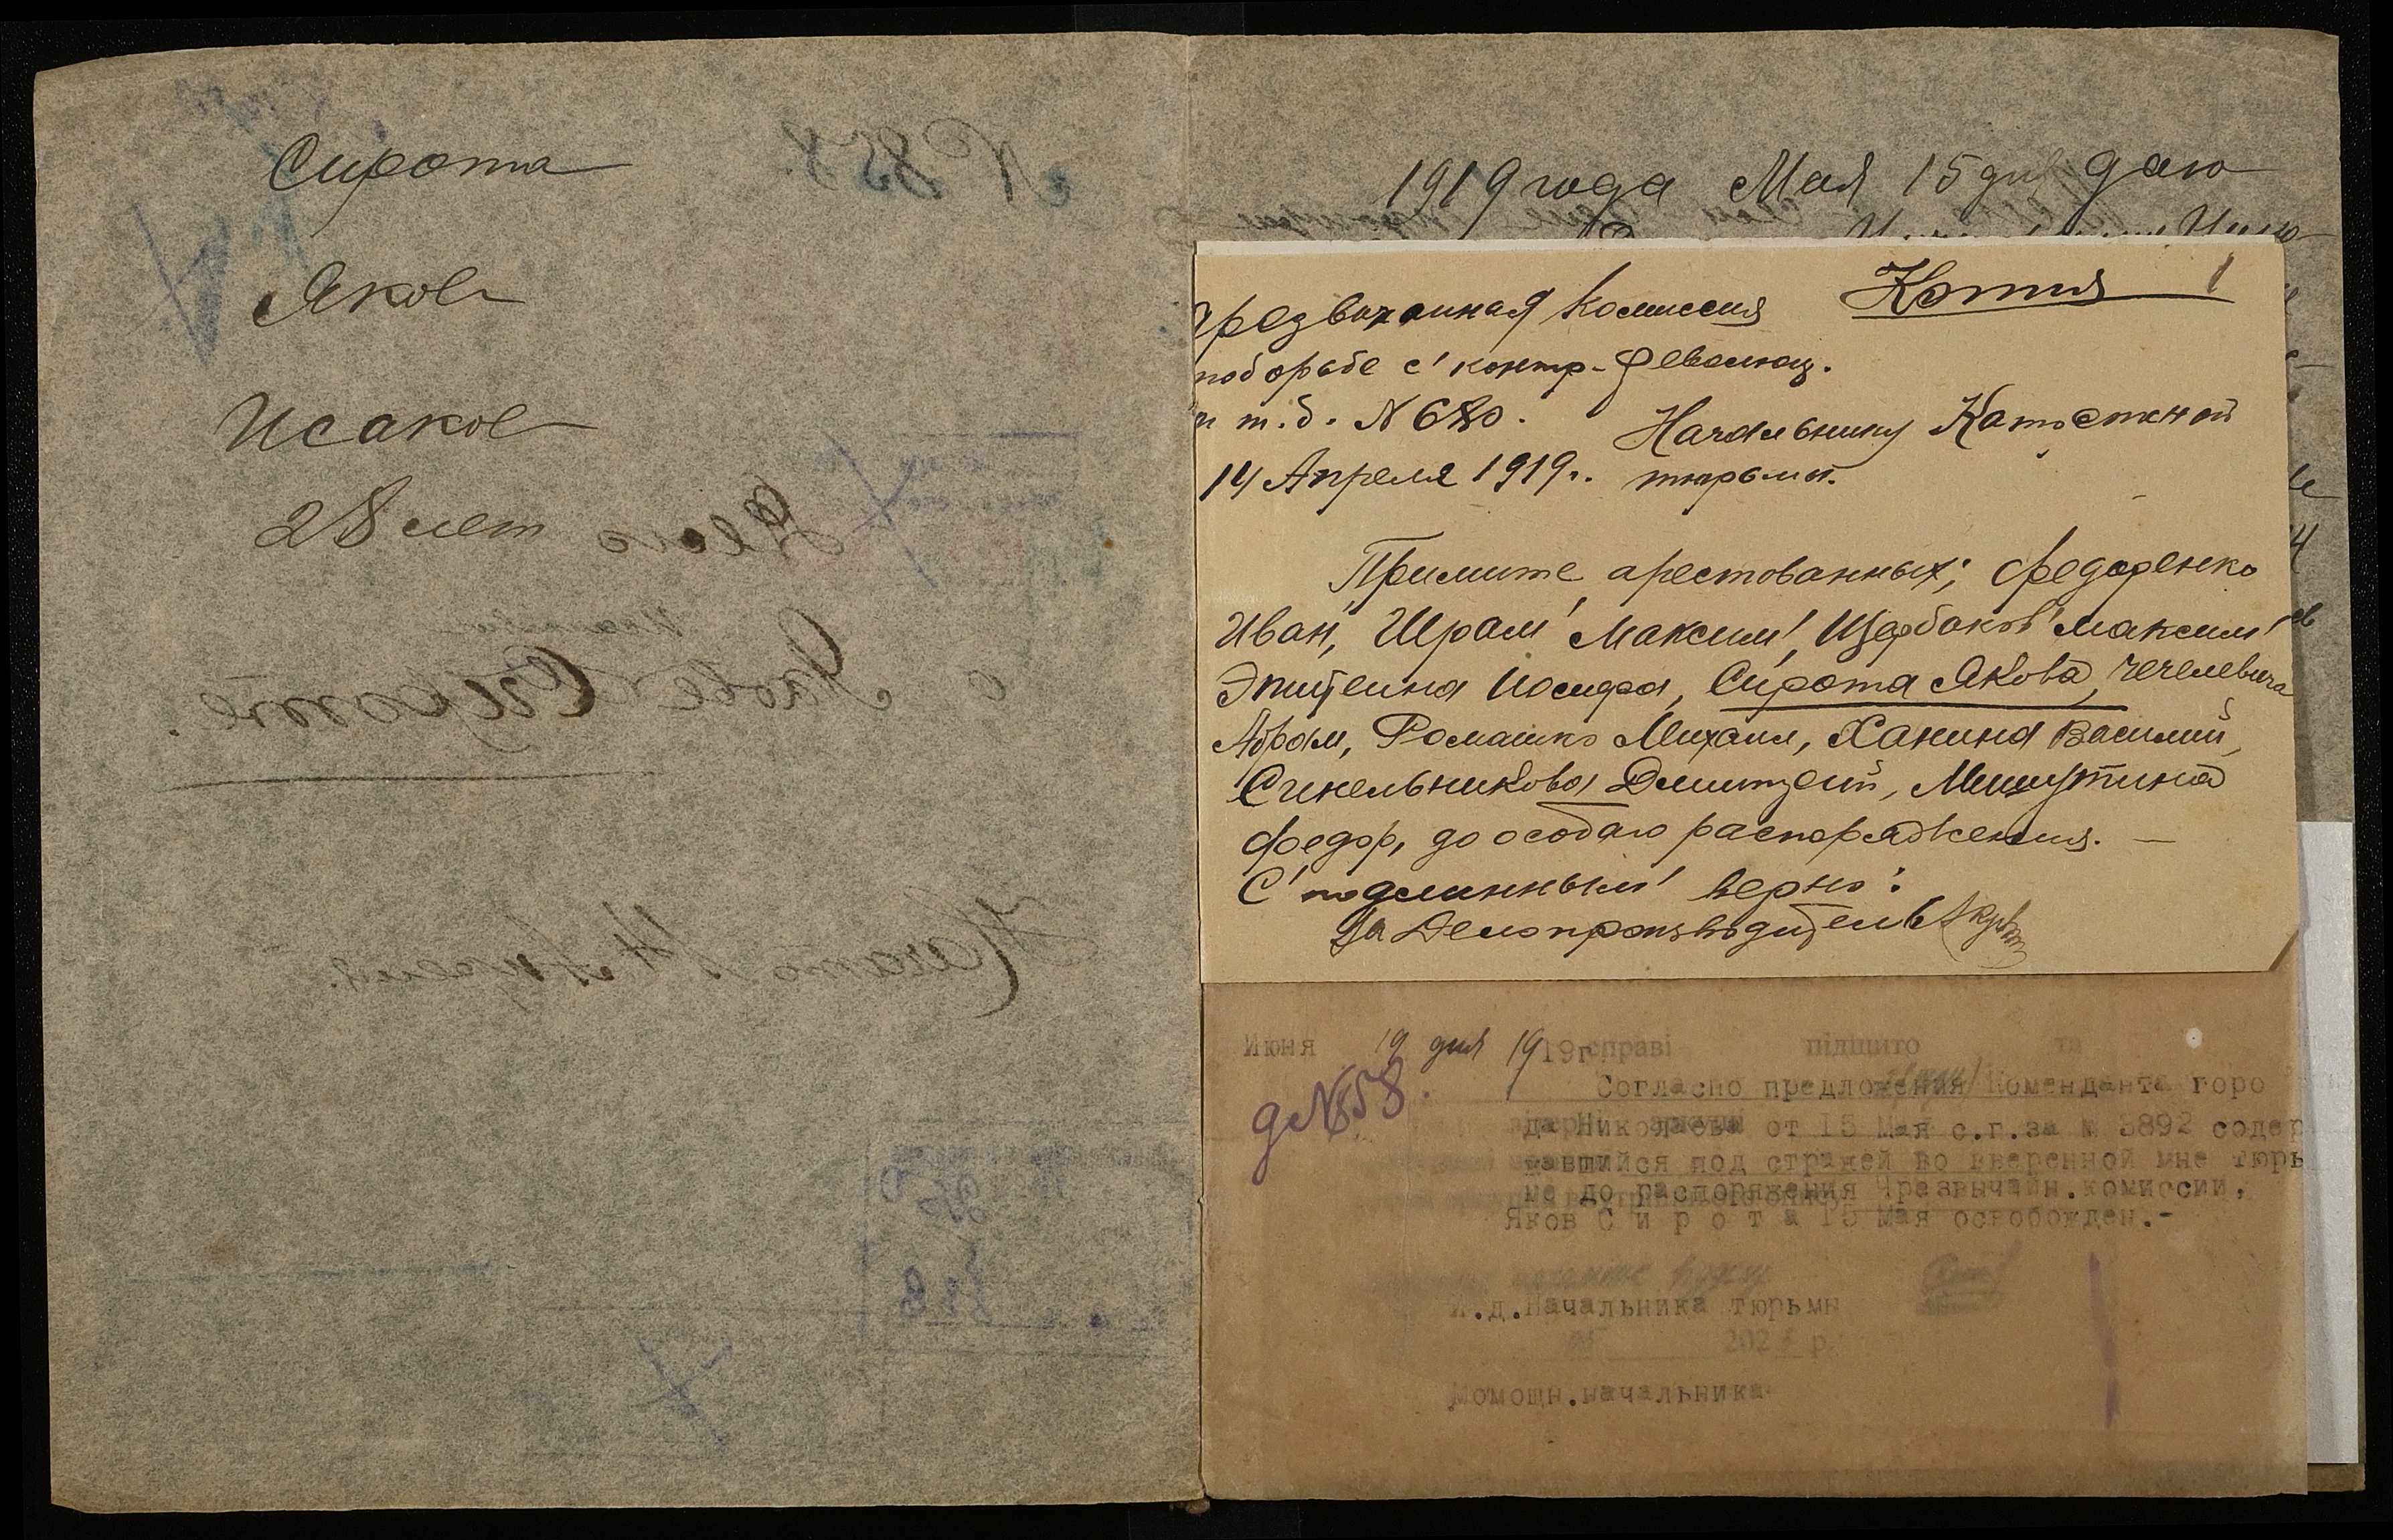 Сирота
Яков
Исаков
28 лет
№ 858.
Дело
о Якове Сироте.
Начато 14 Апреля.
1919 года Мая 15 дня даю
Копия 1
Чрезвычайная Комиссия
по борьбе с контр-Революц.
и т.д. № 680.
14 Апреля 1919 г.
Начальнику Каторжной
тюрьмы.
Примите арестованных; Федоренко
Иван, Шрам Максим, Щербаков Максим
Эпштейна Иосифа, Сирота Якова, Чечелевича
Абрам, Ромашко Михаил, Ханина Василий,
Синельникова Дмитрий, Мишустина
Федор, до особаго распоряжения. —
С подлинным верно:
За Делопроизводитель
Июня 19 дня 1919г.
справі підшито та
д№858.
Согласно предложения Коменданта горо
да Николаева от 15 Мая с.г. за № 3892 содер
жавшийся под стражей во вверенной мне тюрь
ме до распоряжения Чрезвычайн.комиссии,
Яков С и р о т а 15 Мая освобожден.-
И.д.Начальника тюрьмы
202 р.
Помощн.начальника